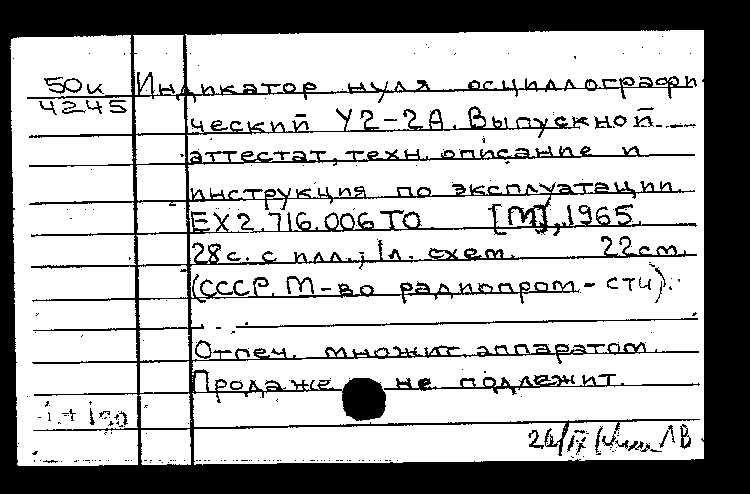 50к Индикатор нуля осциллографи-
4245
ческий У2-2А. Выпускной
аттестат, техн. описание и
инструкция по эксплуатации.
ЕХ2.716.006 ТО [М], 1965.
28с. с илл.; 1л. схем. 22см.
(СССР. М-во радиопром-сти).
Отпеч. множит. аппаратом.
Продаже не подлежит.
ЛВ